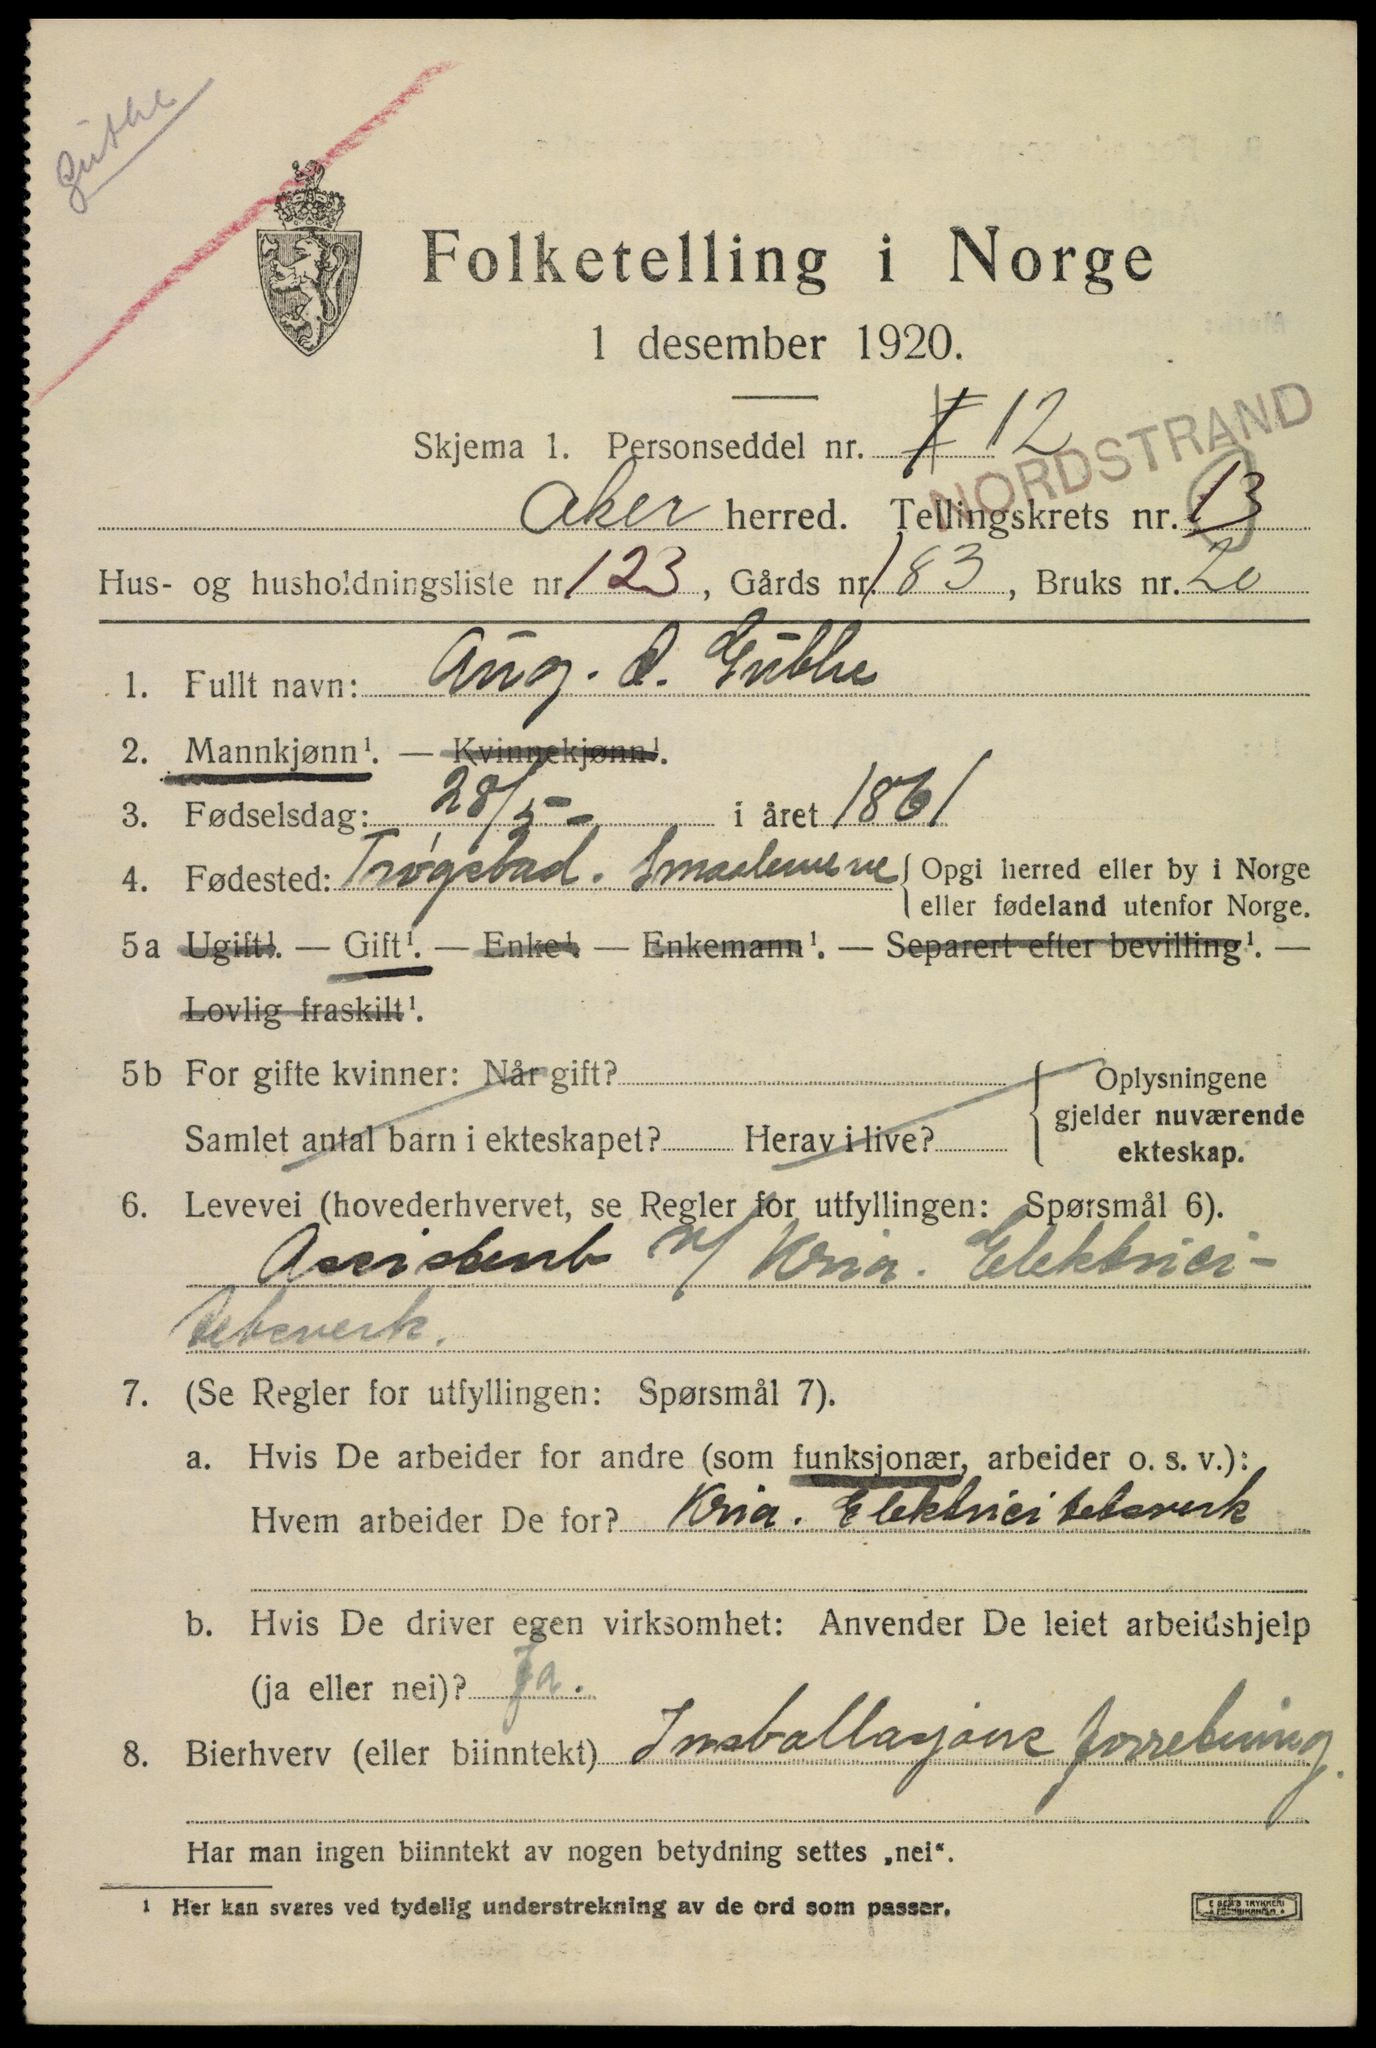 Guthe
Folketelling i Norge
1 desember 1920.
Skjema 1. Personseddel nr. 12
NORDSTRAND
Aker herred. Tellingskrets nr. 13
Hus- og husholdningsliste nr. 123, Gårds nr. 183, Bruks nr. 20
1. Fullt navn: Aug. O. Guthe
2. Mannkjønn¹. — Kvinnekjønn¹.
3. Fødselsdag: 28/5- i året 1861
4. Fødested: Trøgstad. Smaalenene { Opgi herred eller by i Norge
eller fødeland utenfor Norge.
5a Ugift¹. — Gift¹. — Enke¹. — Enkemann¹. — Separert efter bevilling¹. —
Lovlig fraskilt¹.
5b For gifte kvinner: Når gift? { Oplysningene
gjelder nuværende
Samlet antal barn i ekteskapet? Herav i live?
ekteskap.
6. Levevei (hovederhvervet, se Regler for utfyllingen: Spørsmål 6).
Assistent v/ Kria. Elektrici-
tetsverk.
7. (Se Regler for utfyllingen: Spørsmål 7).
a. Hvis De arbeider for andre (som funksjonær, arbeider o. s. v.):
Hvem arbeider De for? Kria. Elektricitetsverk
b. Hvis De driver egen virksomhet: Anvender De leiet arbeidshjelp
(ja eller nei)? Ja.
8. Bierhverv (eller biinntekt) Installasjons forretning.
Har man ingen biinntekt av nogen betydning settes „nei“.
¹ Her kan svares ved tydelig understrekning av de ord som passer.